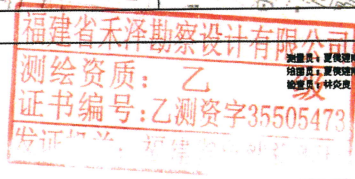 福建省禾泽勘察设计有限公司
测绘资质：乙 级
证书编号：乙测资字35505473
发证机关：福建
测量员：夏侯建
绘图员：夏侯建
检查员：林炎良